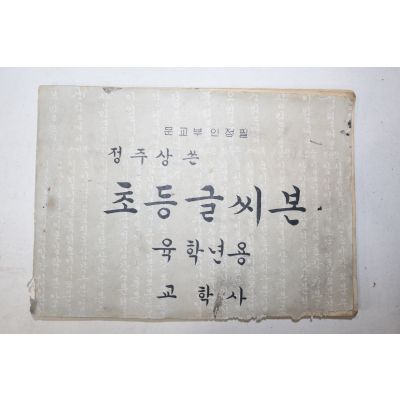 문교부 인정필
정주상 쓴
초등글씨본
육학년용
교학사